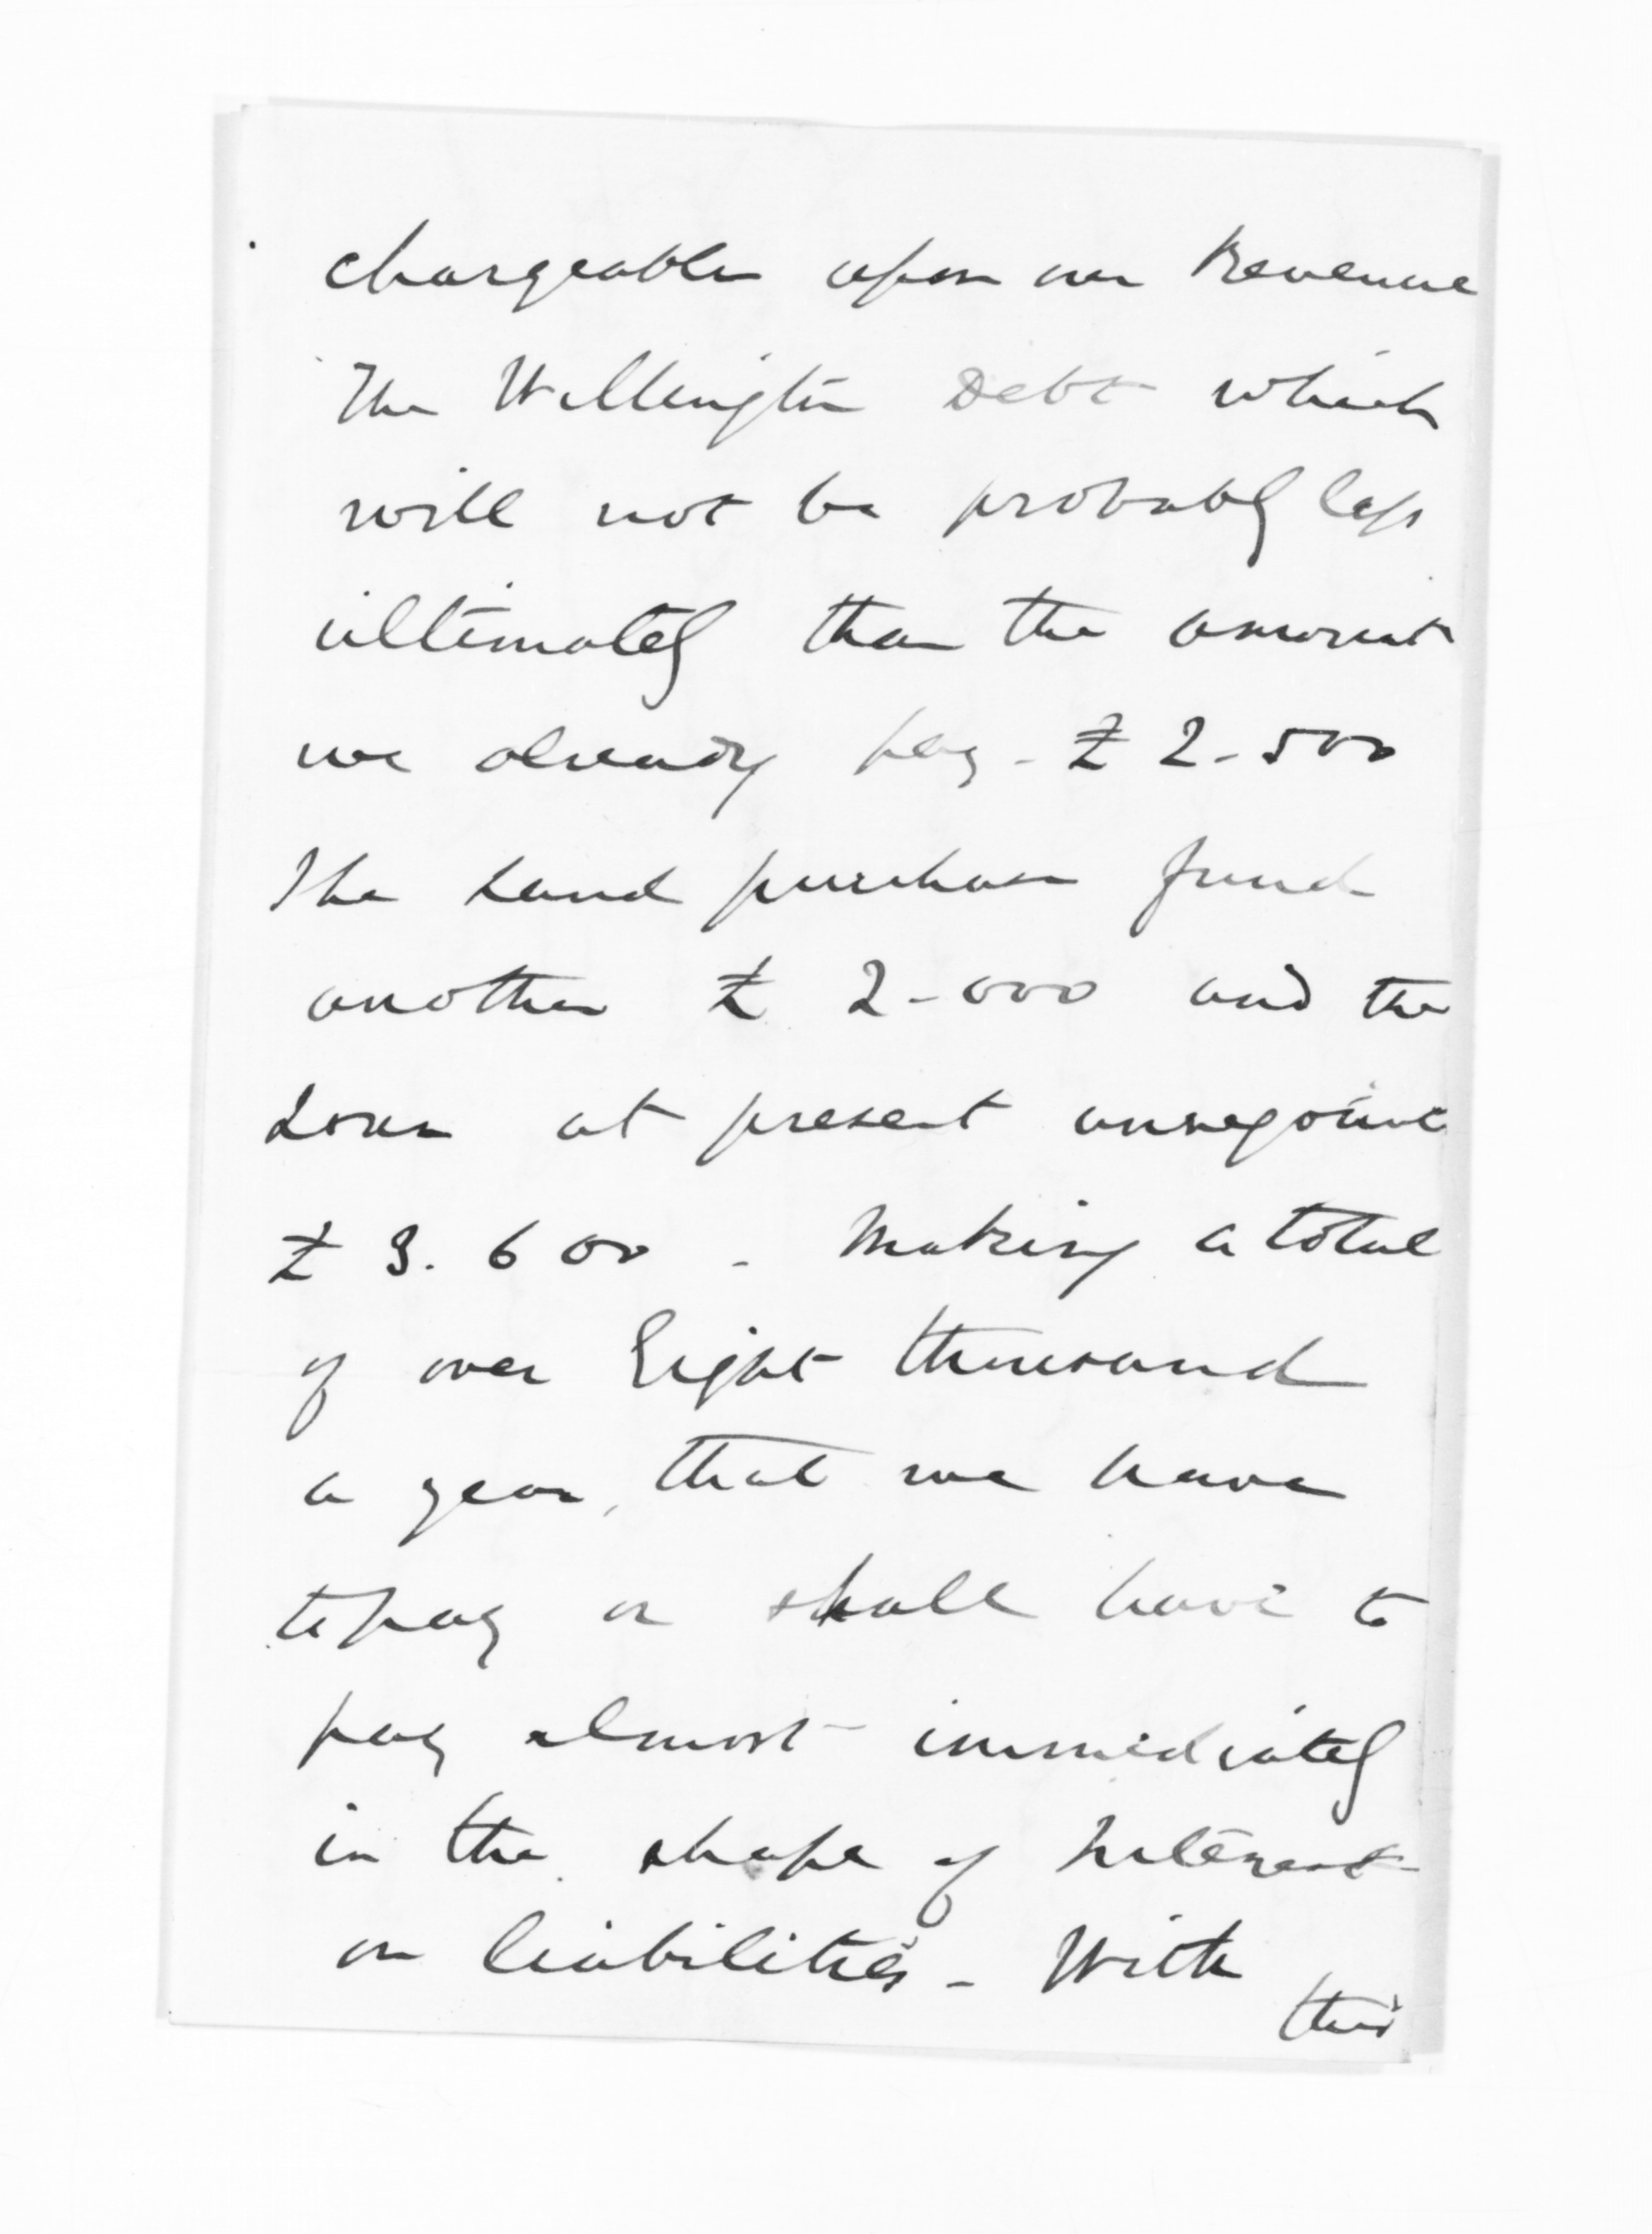 chargeable upon our Revenue
The Wellington Debt which
will not be probably less
ultimately than the amount
we already pay - £2-500
The Land purchase fund
another £ 2-000 and the
Loan at present
£ 3.600 - Making a total
of over Eight thousand
a year, that we have
to pay or shall have to
pay almost immediately
in the shape of Interest
on liabilities - With
this